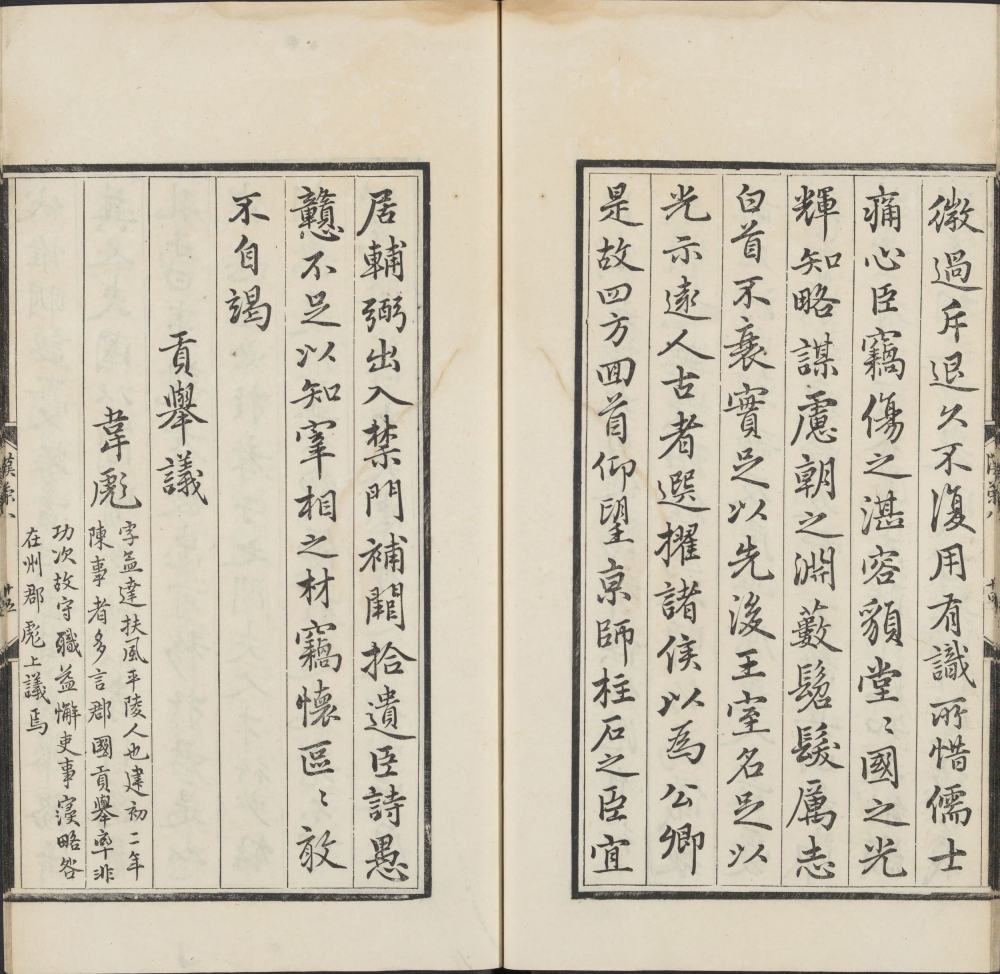 微過斥退久不復用有識所惜儒士
痛心臣竊傷之湛容貌堂〻國之光
輝知略謀慮朝之淵藪髫髮厲志
白首不衰實足以先後王室名足以
光示遠人古者選擢諸侯以為公卿
是故四方回首仰望京師柱石之臣宜
居輔弼出入禁門補闕拾遺臣詩愚
戇不足以知宰相之材竊懷區〻敢
不自竭
貢舉議
韋彪
字孟達扶風平陵人也建初二年
陳事者多言郡國貢舉率非
功次故守職益懈吏事寖略咎
在州郡彪上議焉